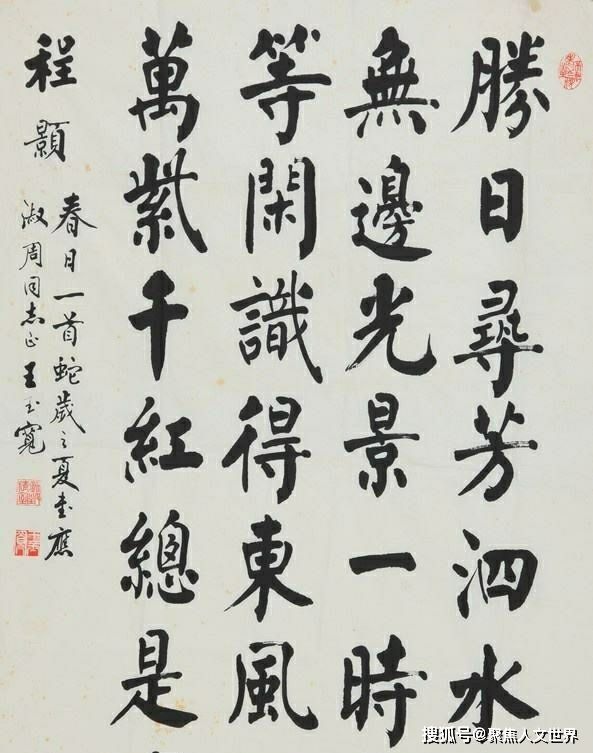 勝日尋芳泗水
無邊光景一時
等閑識得東風
萬紫千紅總是
程顥
春日一首蛇歲之夏書應
淑周同志正王玉寬
搜狐号@聚焦人文世界